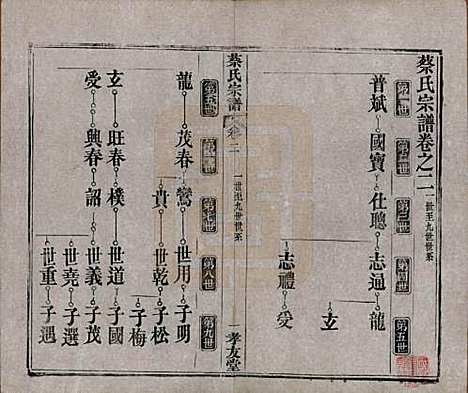 蔡氏宗譜卷之二 一世至九世世系
第一世 第二世 第三世 第四世 第五世
普斌 國寶 仕聰 志通 龍
玄
志禮 愛
蔡氏宗譜 卷二 一世至九世世系 孝友堂
第五世 第六世 第七世 第八世 第九世
龍 茂春 鸞 世用 子明
貴 世乾 子松
子梅
玄 旺春 樸 世道 子國
愛 興春 詔 世義 子茂
世堯 子選
世重 子遇